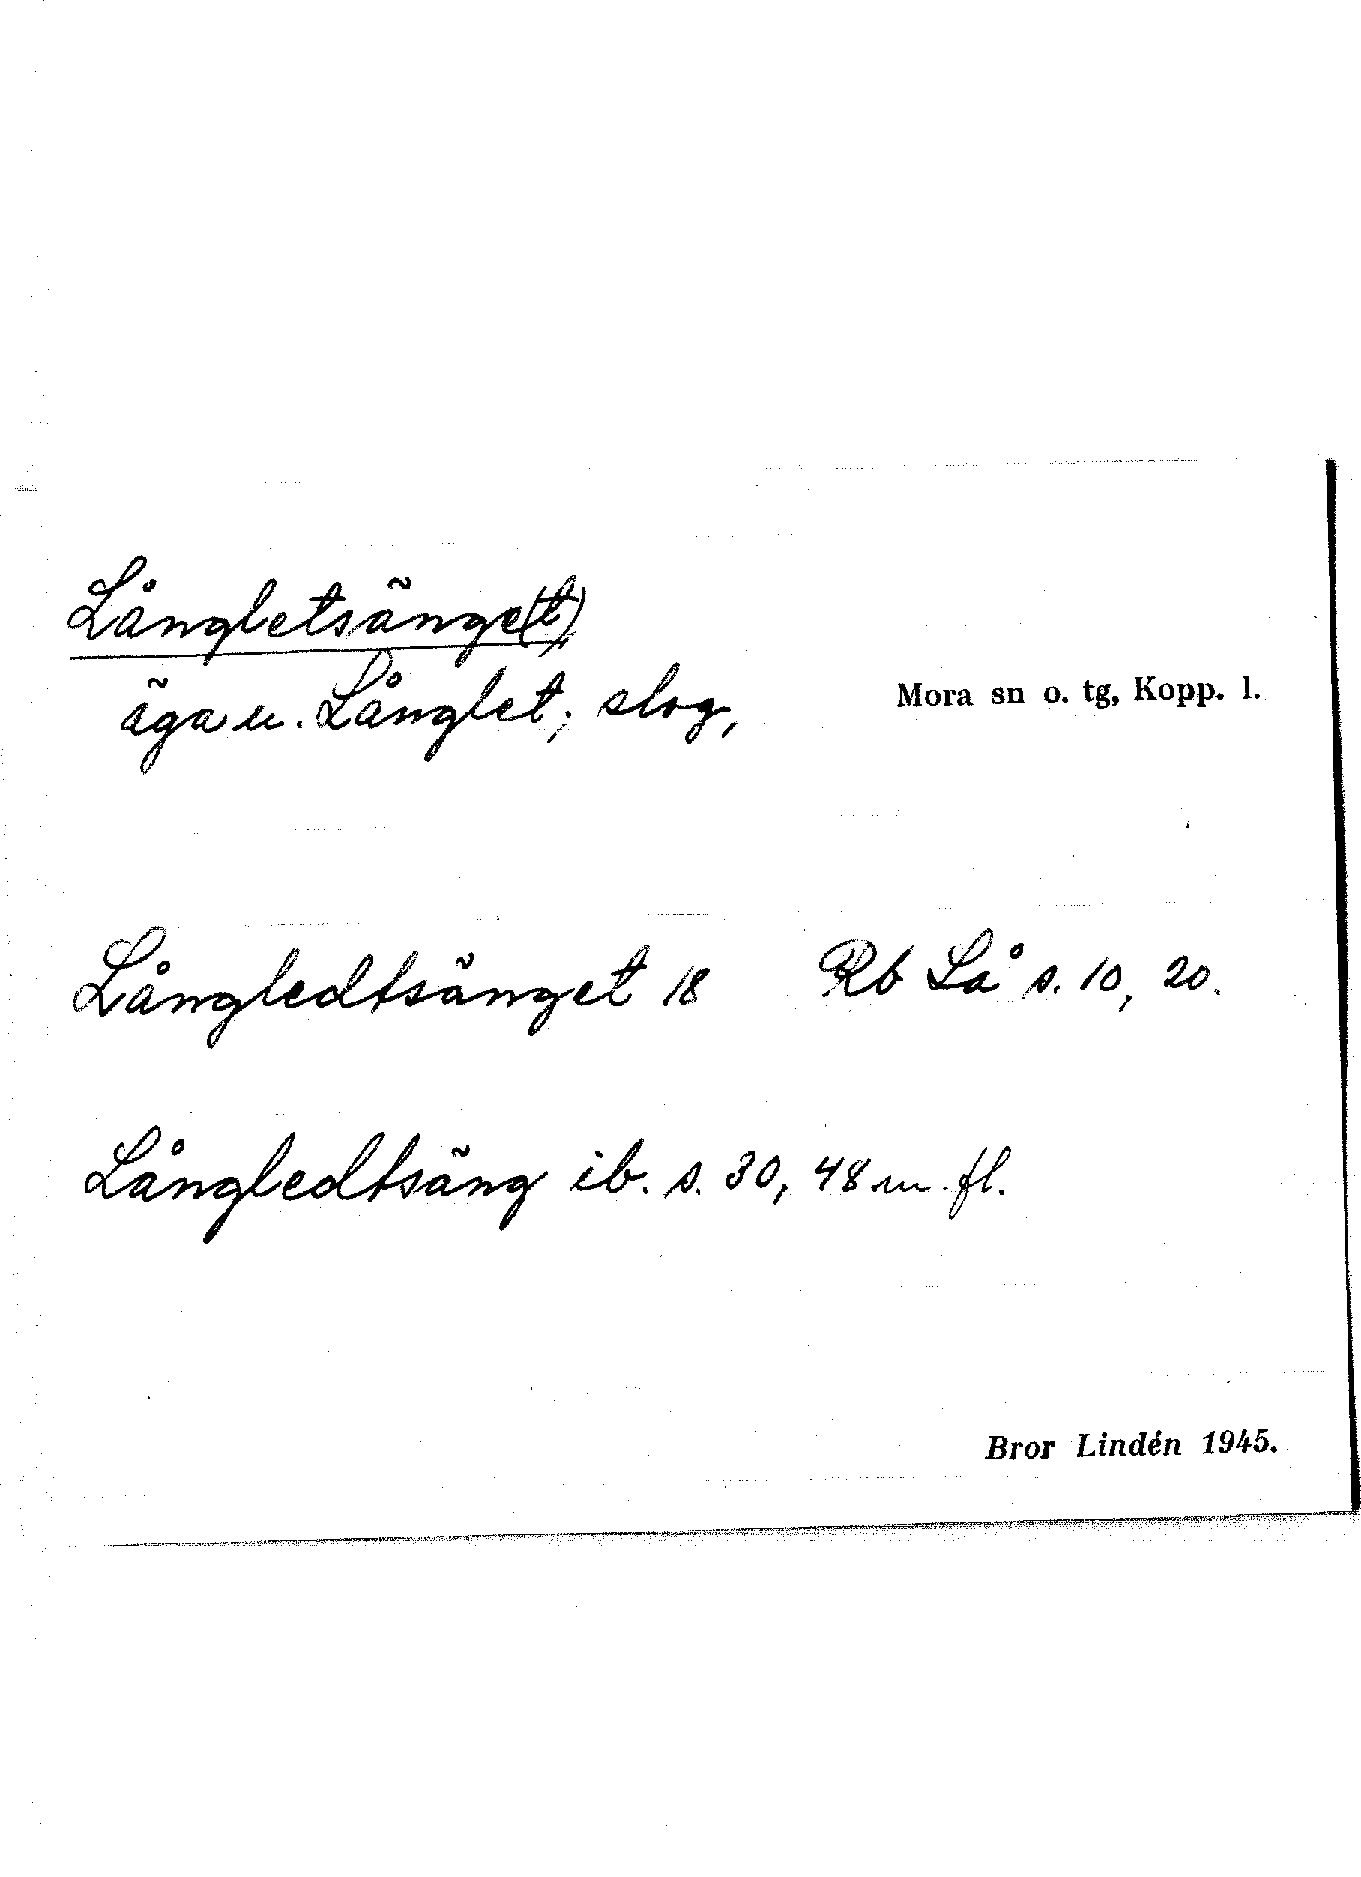 Långletsänge(t)
äga u. Långlet; slog,
Mora sn o. tg, Kopp. l.
Långledtsänget 18 Rb Lå s. 10, 20.
Långledtsäng ib. s. 30, 48 m. fl.
Bror Lindén 1945.